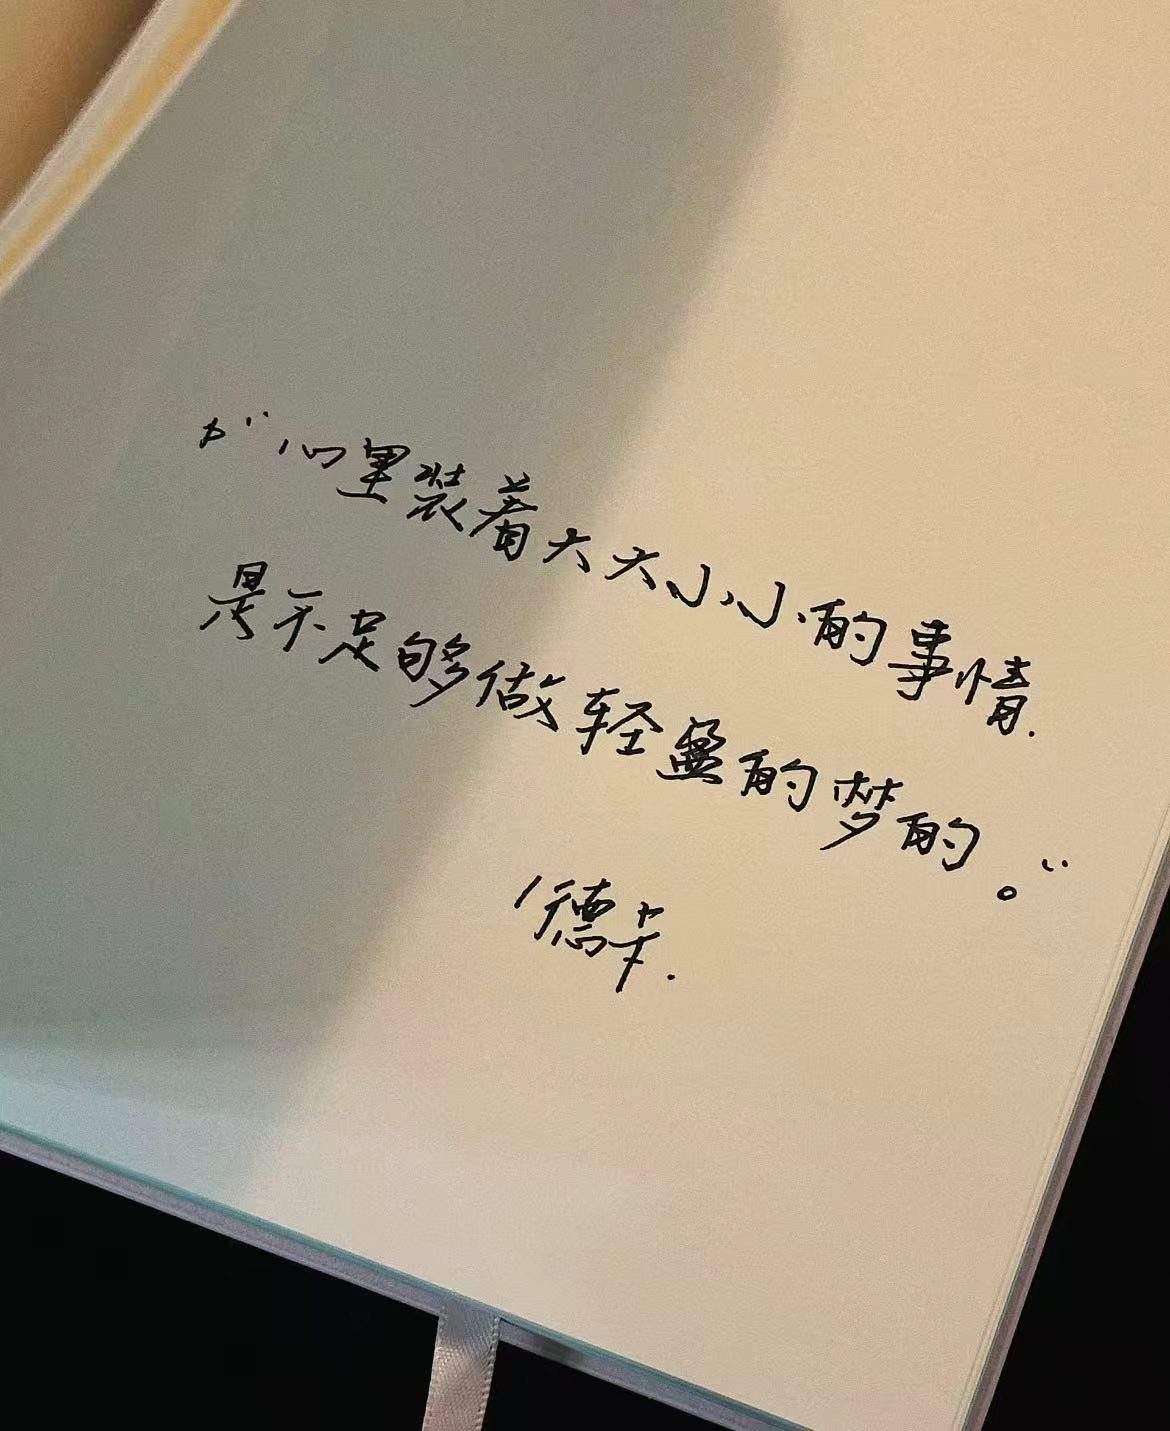 “心里装着大大小小的事情.
是不足够做轻盈的梦的。”
德卡.